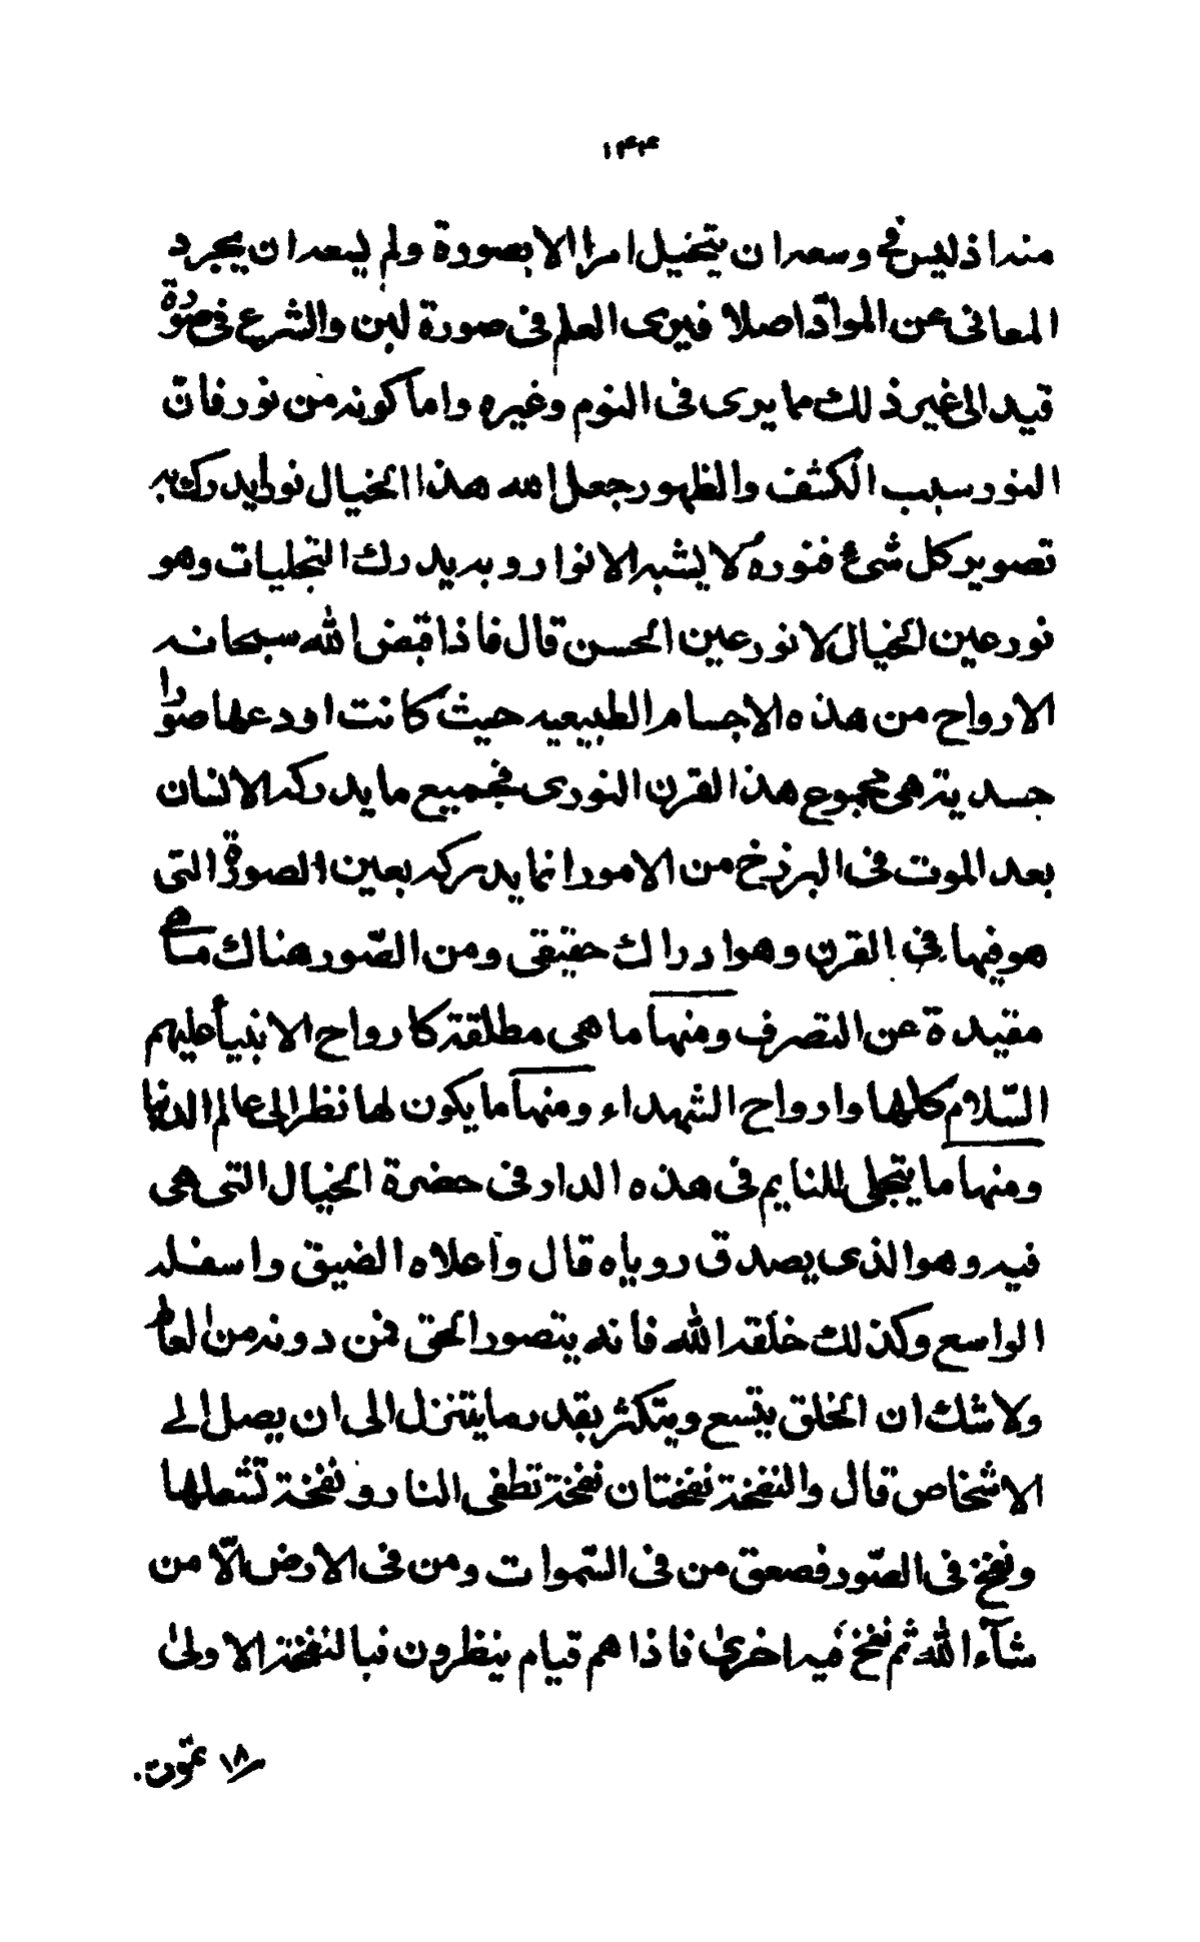 ١٤٤
منه اذ ليس في وسعه ان يتخيل امرا الا بصورة ولم يسعه ان يجرد
المعانى عن الموادّ اصلا فيرى العلم فى صورة لبن والشرع فى صورة
قيد الى غير ذلك مما يرى فى النوم وغيره واما كونه من نور فانّ
النور سبب الكشف والظهور جعل الله هذا الخيال نورا يدرك به
تصوير كل شئ فنوره لا يشبه الانوار وبه يدرك التجليات وهو
نور عين الخيال لا نور عين الحسن قال فاذا قبض الله سبحانه
الارواح من هذه الاجسام الطبيعيه حيث كانت اودعها صورا
جسدية هى مجموع هذا القرن النورى فجميع ما يدركه الانسان
بعد الموت فى البرزخ من الامور انما يدركه بعين الصورة التى
هو فيها فى القرن وهو ادراك حقيقى ومن الصّور هناك ما هى
مقيدة عن التصرف ومنها ما هى مطلقة كارواح الانبيأ عليهم
السّلام كلها وارواح الشهداء ومنها ما يكون لها نظر الى عالم الدنيا
ومنها ما يتجلى للنايم فى هذه الدار فى حضرة الخيال التى هى
فيه وهو الذى يصدق روياه قال واعلاه الضيق واسفله
الواسع وكذلك خلقه الله فانه يتصور الحق فمن دونه من العالم
ولا شك ان الخلق يتسع ويتكثر بقدر ما يتنزل الى ان يصل الے
الاشخاص قال والنفخة نفختان نفخة تطفى النار ونفخة تشعلها
ونفخ فى الصّور فصعق من فى السّموات ومن فى الارض الّا من
شآء الله ثم نفخ فيه اخرىٰ فاذا هم قيام ينظرون فبالنفخة الاولىٰ
١٨